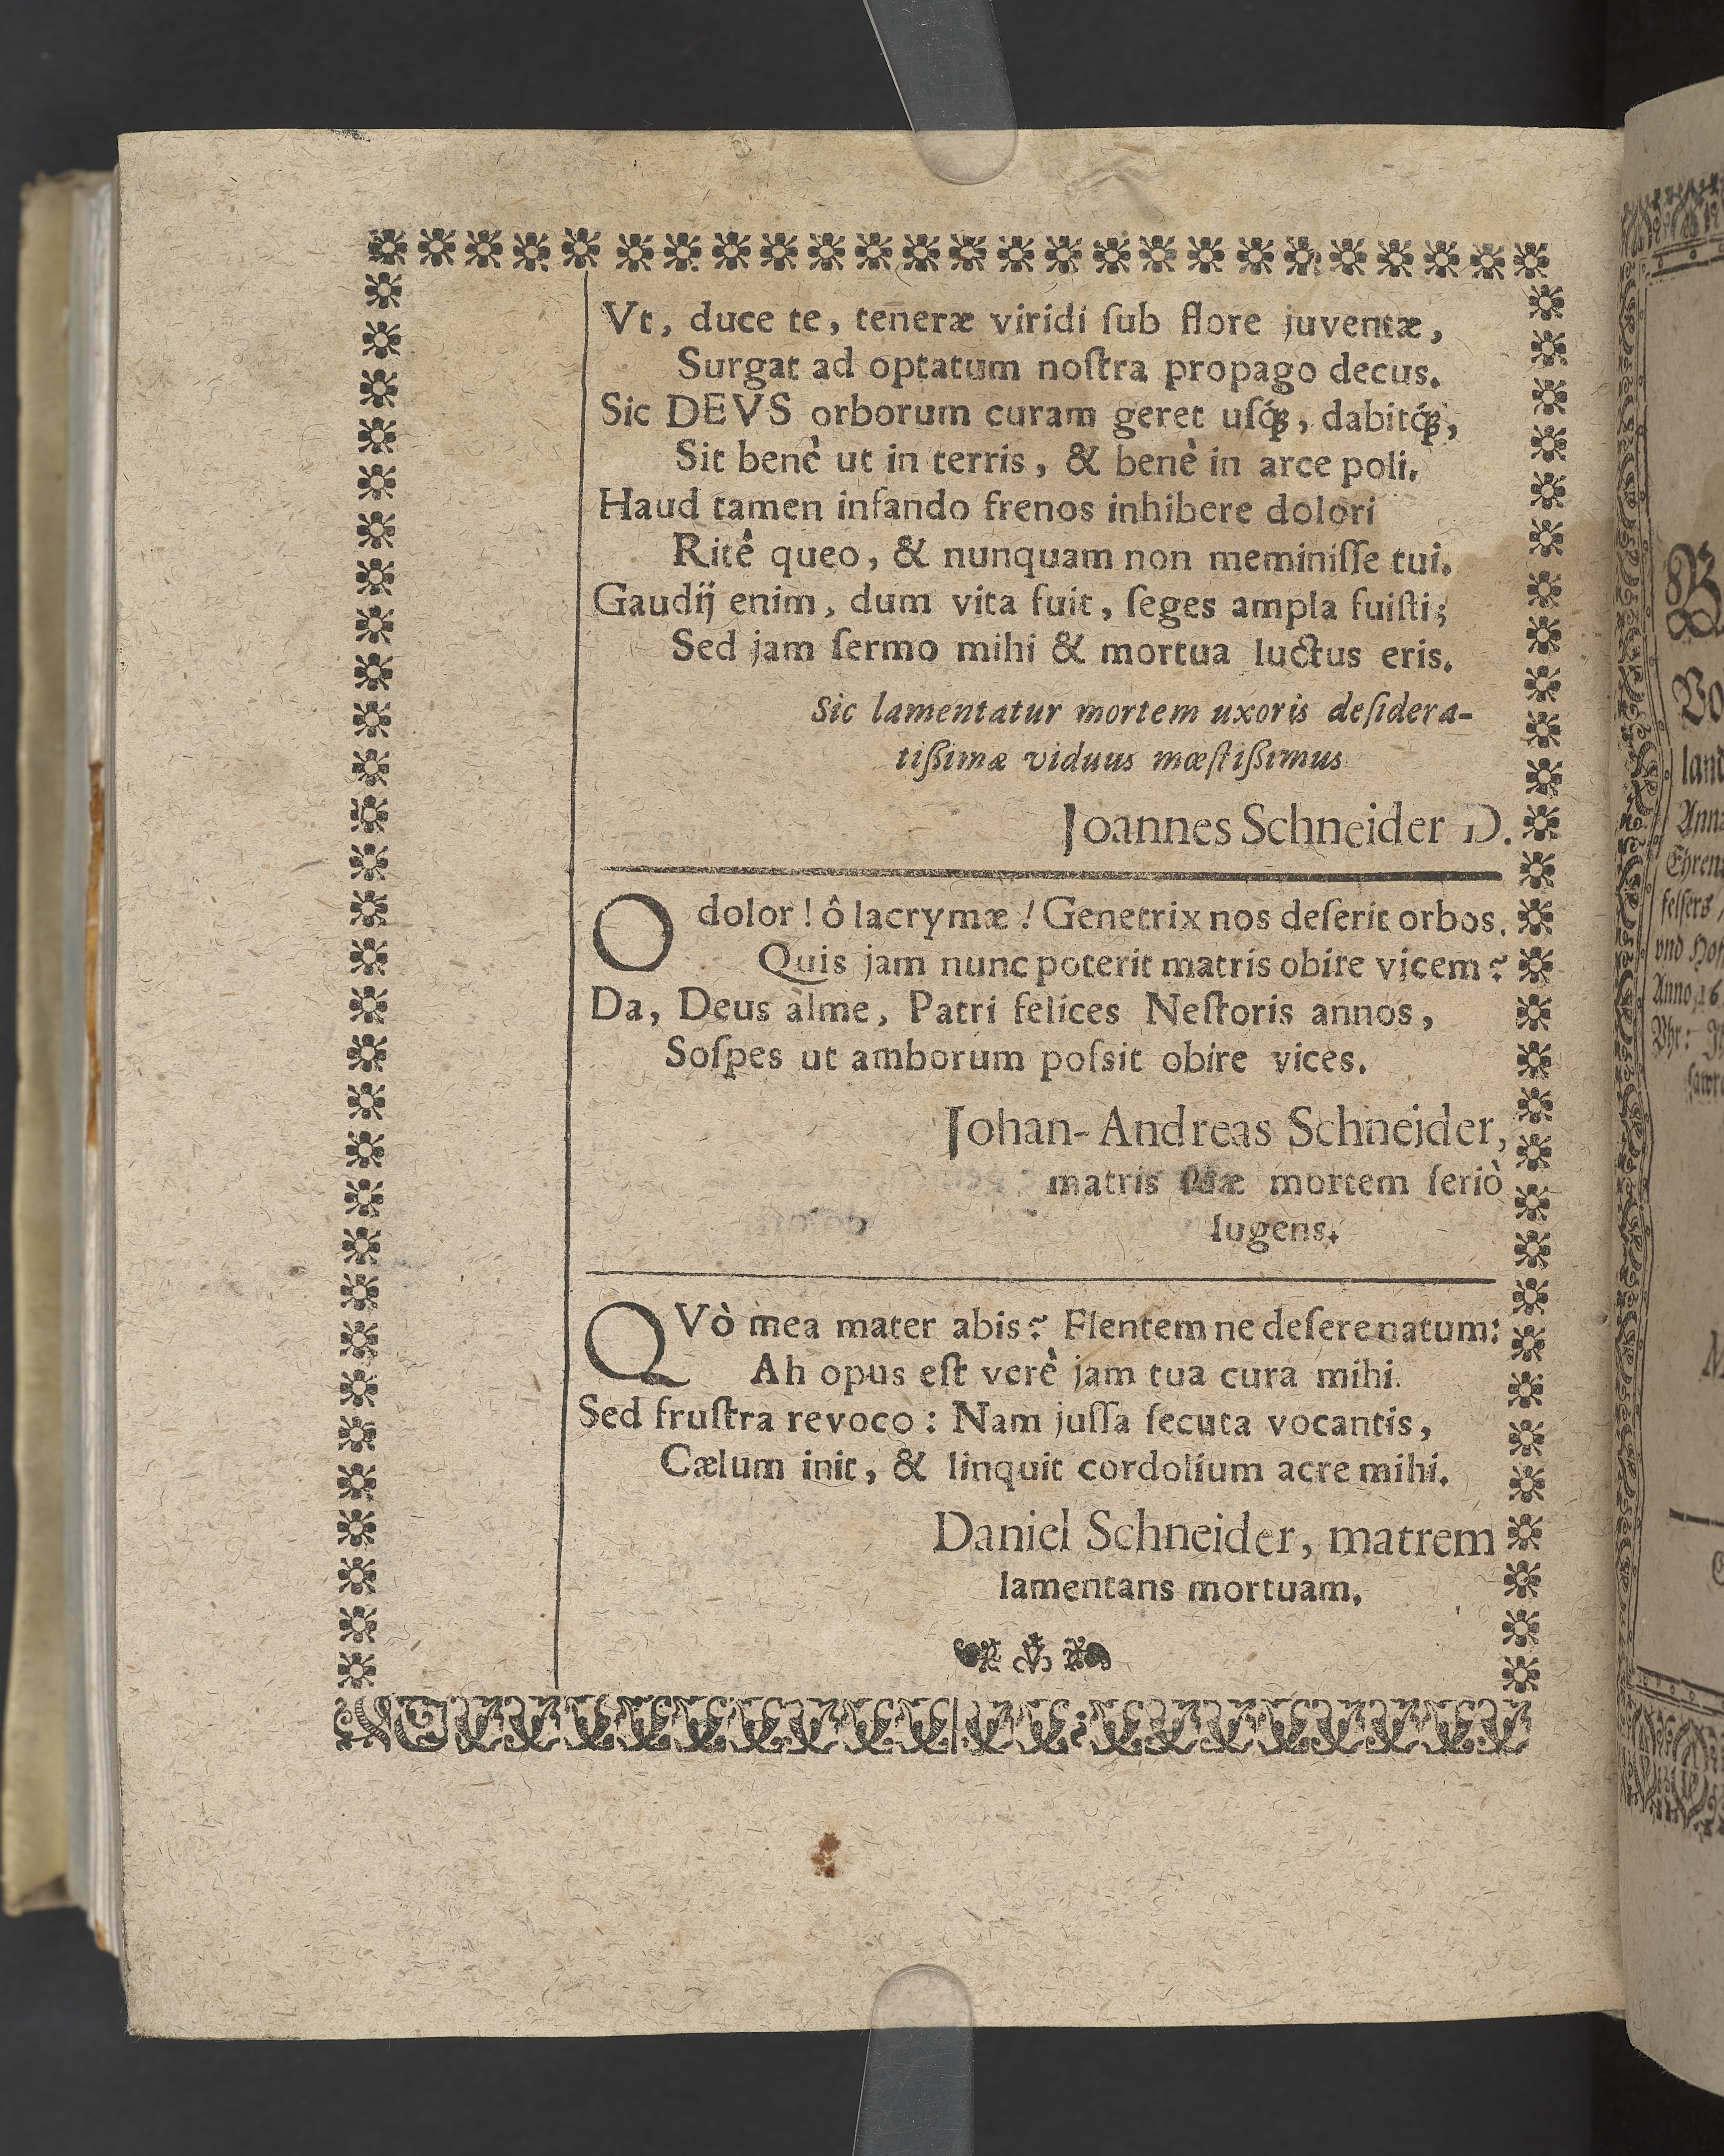 Vt, duce te, teneræ viridi ſub flore juventæ,
Surgat ad optatum noſtra propago decus.
Sic DEVS orborum curam geret uſq́ꝫ, dabitq́ꝫ,
Sit benè ut in terris, & benè in arce poli.
Haud tamen infando frenos inhibere dolori
Ritè queo, & nunquam non meminiſſe tui.
Gaudij enim, dum vita fuit, ſeges ampla fuiſti;
Sed jam ſermo mihi & mortua luctus eris.
Sic lamentatur mortem uxoris deſidera-
tißimæ viduus mœſtißimus
Joannes Schneider D.
O dolor! ô lacrymæ! Genetrix nos deſerit orbos.
Quis jam nunc poterit matris obire vicem?
Da, Deus alme, Patri felices Neſtoris annos,
Soſpes ut amborum poſsit obire vices.
Johan-Andreas Schneider,
matris mortem ſeriò
lugens.
QVò mea mater abis? Flentem ne deſere natum:
Ah opus eſt verè jam tua cura mihi.
Sed fruſtra revoco: Nam juſſa ſecuta vocantis,
Cælum init, & linquit cordolium acre mihi.
Daniel Schneider, matrem
lamentans mortuam.
Vo
land
Ehren
felſers /
vnd Hof
Anno 16
Vhr: